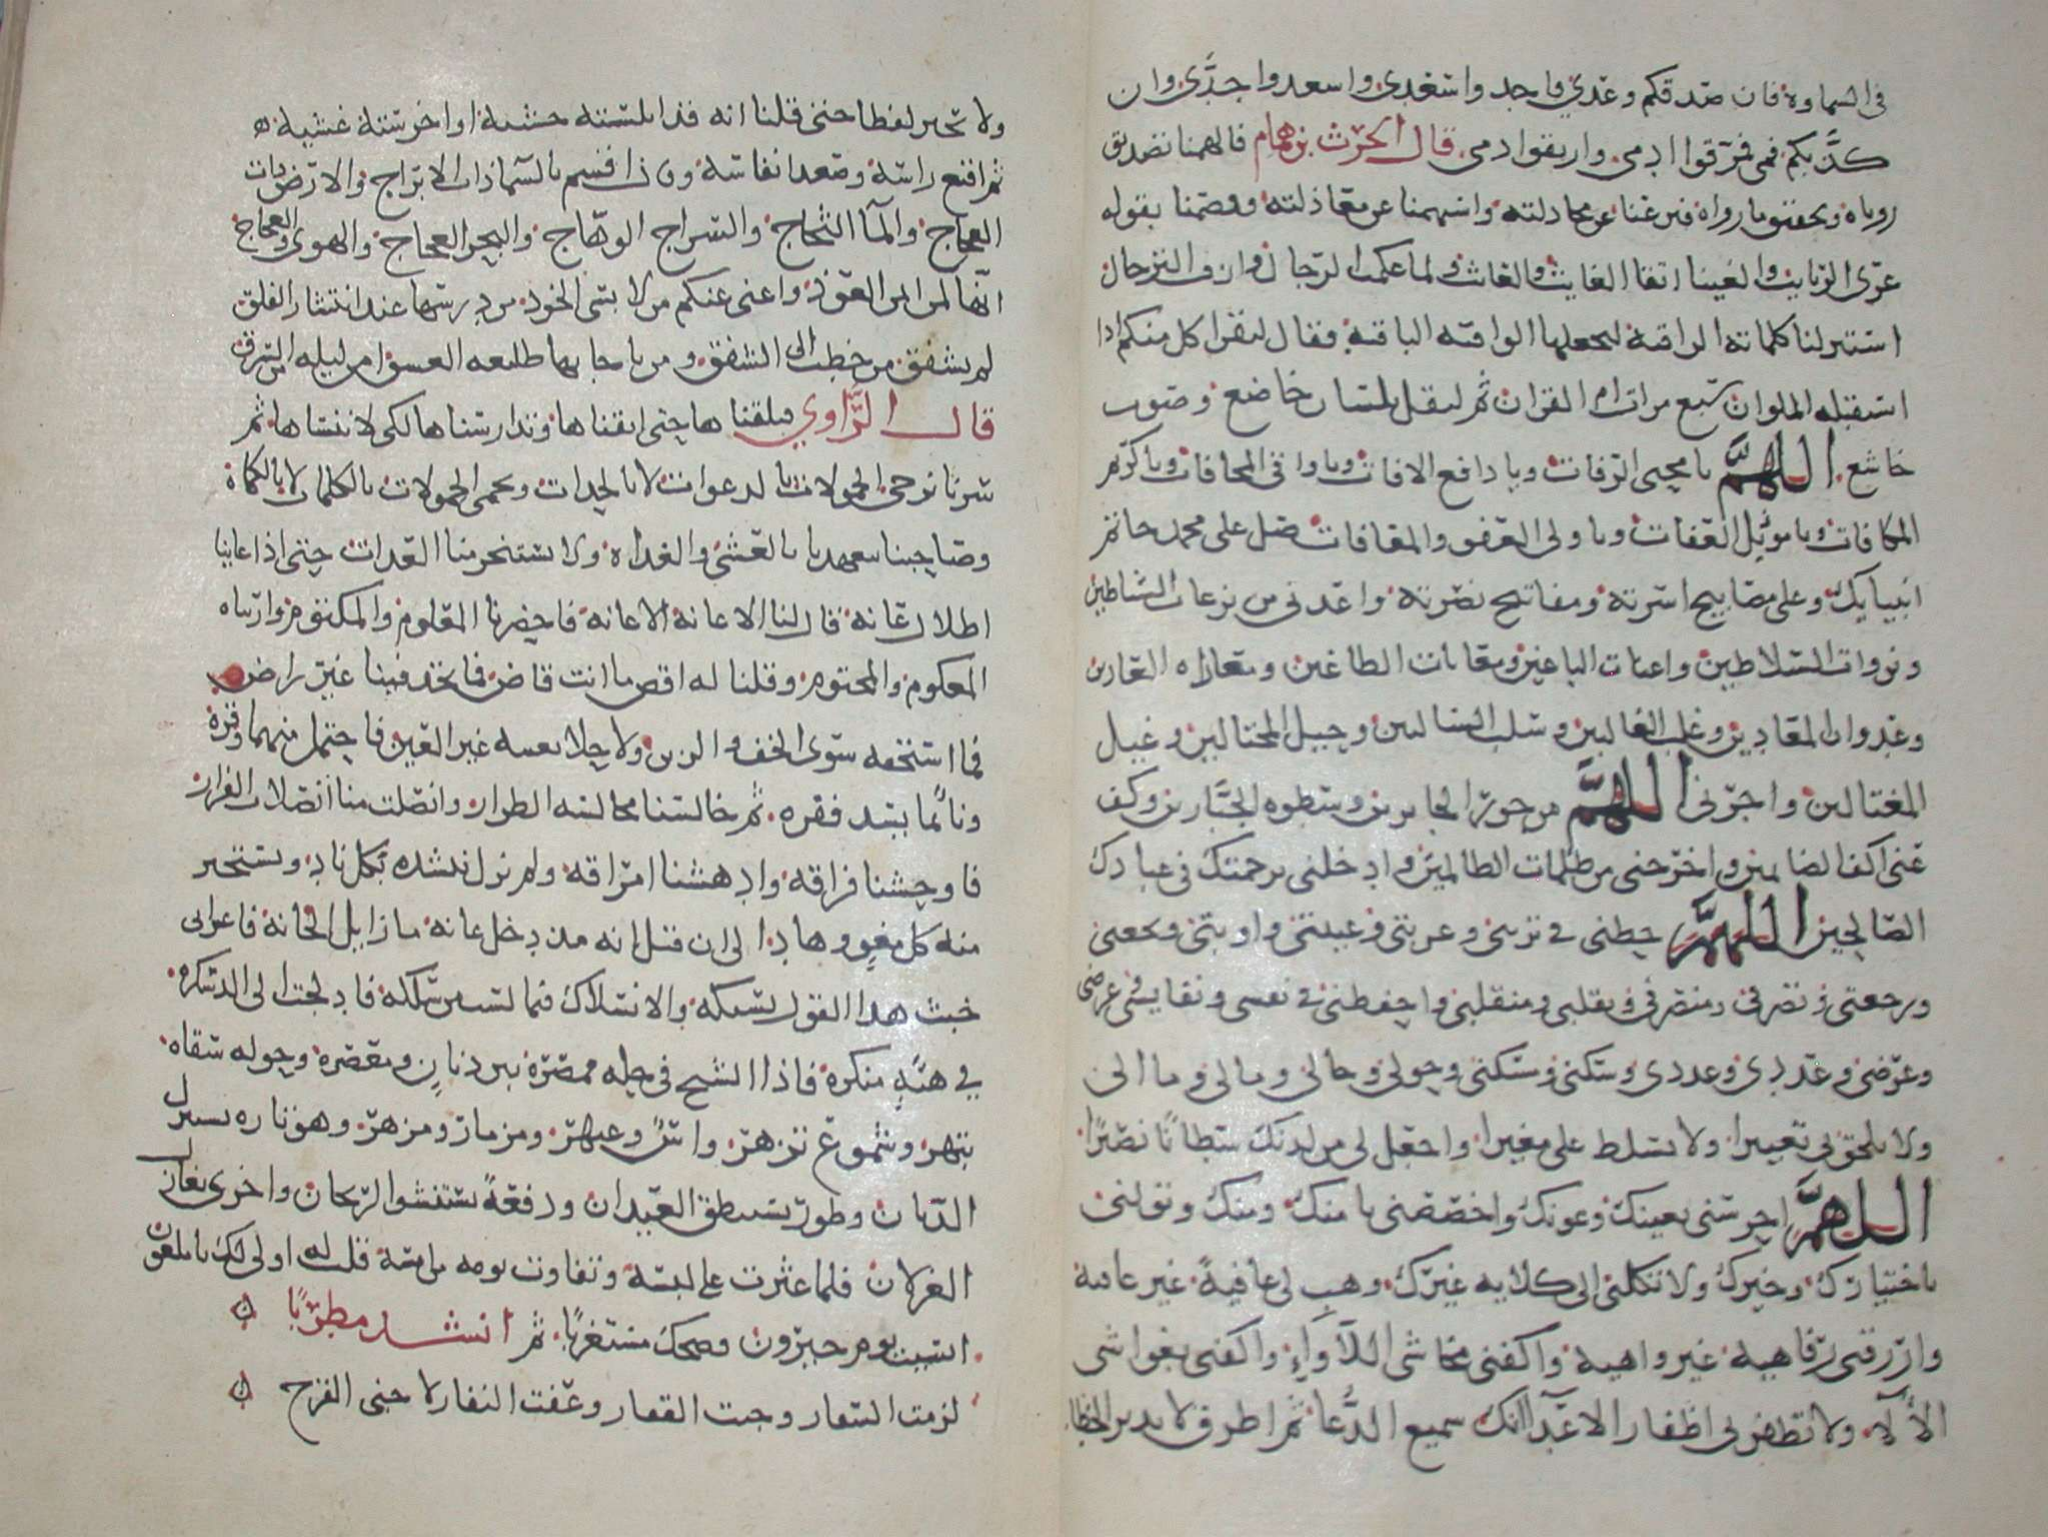 في السماوة فان صدقكم وعدي فاجدوا سعدي واسعدوا جدي وان
كذبكم فمي فمزقوا ادمي واريقوا دمي قال الحرث بن همام فالهمنا تصديق
روياه وتحقيق ما رواه فنزعنا عن مجادلته واستهمنا على معادلته وفصمنا بقوله
عرى الربايث والغينا اتقا العايث والعاث ولما عكمت الرحال وازف الترحال
استنزلنا كلماته الراقية لنجعلها الواقية الباقية فقال ليقرا كل منكم اذا
استقبله الملوان سبع مرات ام القران ثم ليقل بلسان خاضع وصوت
خاشع اللهم يا محيي الرفات ويا دافع الافات ويا واقي المخافات ويا كريم
المكافات ويا موئل العفاة ويا ولي العفو والمعافات صل على محمد خاتم
انبيايك وعلى مصابيح اسرته ومفاتيح نصرته واعذني من نزعات الشياطين
ونزوات السلاطين واعنات الباغين ومعانات الطاغين ومعاداه العادين
وعدوان المعادين وغلب الغالبين وسلب السالبين وحيل المحتالين وغيل
المغتالين واجرني اللهم من جور الجايرين وسطوه الجبارين وكف
عني اكف الضايمين واخرجني من ظلمات الظالمين وادخلني برحمتك في عبادك
الصالحين اللهم حطني في تربتي وغربتي وغيبتي واوبتي ونجعتي
ورجعتي وتصرفي ومنصرفي وتقلبي ومنقلبي واحفظني في نفسي ونفايسي وعرضي
وعرضي وعددي وعددي وسكني ومسكني وحولي وحالي ومالي ومالي
ولا تلحق بي تغييرا ولا تسلط علي مغيرا واجعل لي من لدنك سلطانا نصيرا
اللهم احرسني بعينك وعونك واخصصني بامنك ومنك وتولني
باختيارك وخيرك ولا تكلني الى كلاية غيرك وهب لي عافية غير عافية
وارزقني رفاهية غير واهية واكفني مخاشي اللأواء واكنفني بغواشي
الالآء ولا تظفر بي اظفار الاعدآ انك سميع الدعا ثم اطرق لا يدير لحظا
ولا يحير لفظا حتى قلنا انه قد ابلسته خشية او اخرسته غشية
ثم اقنع راسه وصعد انفاسه وقال اقسم بالسما ذات الابراج والارض ذات
الفجاج والمآ الثجاج والسراج الوهاج والبحر العجاج والهوى والعجاج
انها لمن ايمن العوذ واغنى عنكم من لابسي الخوذ من درسها عند ابتسار الفلق
لم يشفق من خطب الى الشفق ومن ناجا بها طليعه الغسق امن ليله من السرق
قال الراوي فتلقناها حتى اتقناها وتدارسناها لكي لا ننساها ثم
سرنا نزجي الحمولات بالدعوات لا بالحدات ونحمي الحمولات بالكلمات لا بالكماة
وصاحبنا يتعهدنا بالعشي والغداة ولا يستنجز منا العدات حتى اذا عاينا
اطلال عانة قال لنا الاعانة الاعانة فاحضرنا المعلوم والمكتوم واريناه
المعكوم والمختوم وقلنا له اقض ما انت قاض فما تجد فينا غير راض
فما استخفه سوى الخف والزين ولا حلا بعينه غير العين فاحتمل منهما وقره
وناء بما يسد فقره ثم خالسنا مخالسة الطرار وانصلت منا انصلات الفرار
فاوحشنا فراقه وادهشنا امتراقه ولم نزل ننشده بكل ناد ونستخبر
عنه كل مغو وهاد الى ان قيل انه مذ دخل عانة ما زايل الحانة فاغراني
خبث هذا القول بسبكه والانسلاك فيما لست من سلكه فادلجت الى الدسكره
في هيئة منكرة فاذا الشيخ في حلة ممصرة بين دنان ومعصرة وحوله سقاه
تبهر وشموع تزهر واس وعبهر ومزمار ومزهر وهو تاره يستبزل
الدنان وطورا يستنطق العيدان ودفعة يستنشق الريحان واخرى يغازل
الغزلان فلما عثرت على لبسه وتفاوت يومه من امسه قلت له اولى لك يا ملعون
انسيت يوم جيرون فضحك مستغربا ثم انشد مطربا
لزمت السفار وجبت القفار وعفت النفار لاجني الفرح